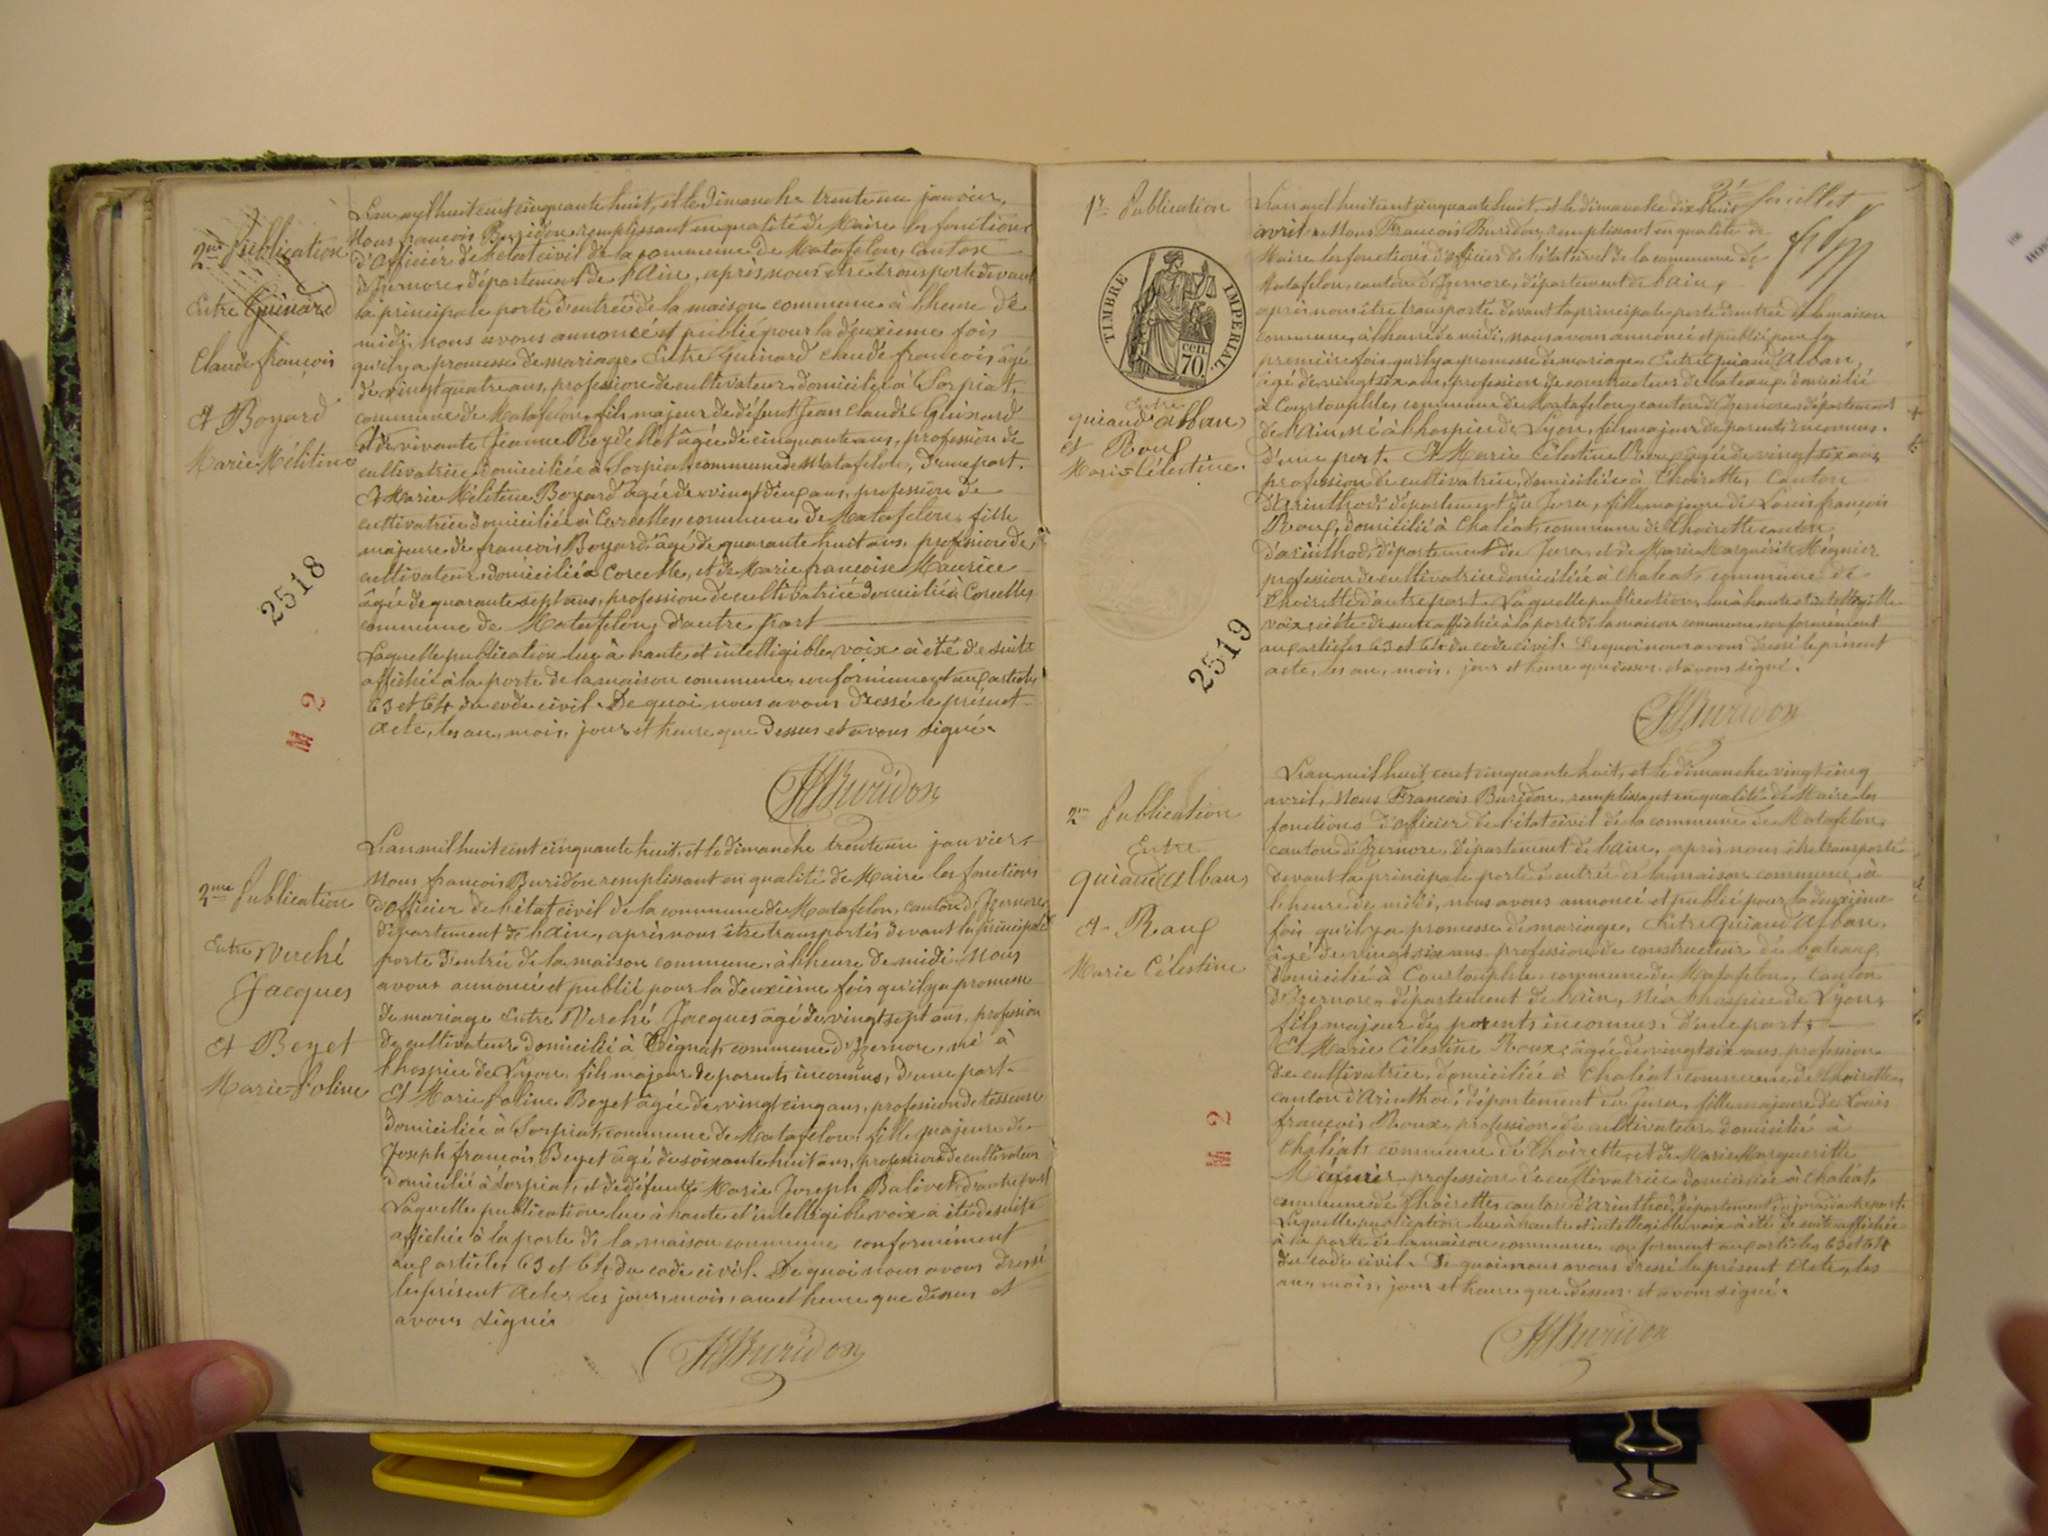 2me Publication
Entre Guinard
Claude françois
Et Boyard
Marie Mélitine
2518
M 2
L'an mil huit cent cinquante huit, et le dimanche trente un janvier,
Nous françois Buridon remplissant en qualité de Maire les fonctions
d'officier de l'état civil de la commune de Matafelon, canton
d'Izernore, département de l'Ain, après nous être transporté devant
la principale porte d'entrée de la maison commune à l'heure de
midi, nous avons annoncé et publié pour la deuxième fois
qu'il y a promesse de mariage Entre Guinard Claude françois âgé
de vingt quatre ans, profession de cultivateur domicilié à Corpiat,
commune de Matafelon, fils majeur de défunt Jean Claude Guinard
et de vivante Jeanne âgée de cinquante ans, profession de
cultivatrice domiciliée à Corpiat commune de Matafelon, d'une part.
Et Marie Mélitine Boyard âgée de vingt deux ans, profession de
cultivatrice domiciliée à Corcelles commune de Matafelon, fille
majeure de françois Boyard âgé de quarante huit ans, profession de
cultivateur domicilié à Corcelle, et de Marie françoise Maurice
âgée de quarante sept ans, profession de cultivatrice domiciliée à Corcelles
commune de Matafelon, d'autre part
Laquelle publication lue à haute et intelligible voix a été de suite
affiché à la porte de la maison commune, conformément aux articles
63 et 64 du code civil. De quoi nous avons dressé le présent
acte, les an, mois, jour et heure que dessus et avons signé.
Buridon
2me Publication
Entre Verché
Jacques
Et Beyet
Marie Poline
L'an mil huit cent cinquante huit, et le dimanche trente un janvier
Nous françois Buridon remplissant en qualité de Maire les fonctions
d'officier de l'état civil de la commune de Matafelon, canton d'Izernore
département de l'Ain, après nous être transportés devant la principale
porte d'entrée de la maison commune, à l'heure de midi, Nous
avons annoncé et publié pour la deuxième fois qu'il y a promesse
de mariage Entre Verché Jacques âgé de vingt sept ans, profession
de cultivateur domicilié à commune d'Izernore, né à
l'hospice de Lyon, fils majeur de parents inconnus, d'une part.
Et Marie Poline Beyet âgée de vingt cinq ans, profession de tisseuse
domiciliée à Corpiat, commune de Matafelon, fille majeure de
Joseph françois Beyet âgé de soixante huit ans, profession de cultivateur
domicilié à Corpiat, et de défunte Marie Joseph Balivet, d'autre part
Laquelle publication lue à haute et intelligible voix a été de suite
affichée à la porte de la maison commune conformément
aux articles 63 et 64 du code civil. De quoi nous avons dressé
le présent acte, les jour, mois, an et heure que dessus et
avons signé
Buridon
1re Publication
TIMBRE IMPERIAL
70 cen.
Entre
quiaud Alban
Et Roux
Marie Célestine.
2519
2e feuillet
L'an mil huit cent cinquante huit, et le dimanche dix huit
avril, Nous François Buridon, remplissant en qualité de
Maire les fonctions d'officier de l'état civil de la commune de
Matafelon, canton d'Izernore, département de l'ain,
après nous être transporté devant la principale porte d'entrée de la maison
commune, à l'heure de midi, nous avons annoncé et publié pour la
première fois qu'il y a promesse de mariage Entre quiaud Alban,
âgé de vingt six ans, profession de constructeur de bateaux domicilié
à Courtouphle, commune de Matafelon, canton d'Izernore, département
de l'Ain, né à l'hospice de Lyon, fils majeur de parents inconnus.
d'une part. Et Marie Célestine Roux, âgée de vingt six ans,
profession de cultivatrice, domiciliée à Thoirette, canton
d'Arinthod, département du Jura, fille majeure de Louis françois
Roux, domicilié à Chaléat, commune de Thoirette canton
d'arinthod, département du Jura, et de Marie Marguérite Mégnier
profession de cultivatrice domiciliée à Chaléat, commune de
Thoirette, d'autre part. Laquelle publication, lue à haute et intelligible
voix, a été de suite affichée à la porte de la maison commune, conformément
aux articles 63 et 64 du code civil. De quoi nous avons dressé le présent
acte, les an, mois, jour et heure que dessus et avons signé.
Buridon
2me Publication
Entre
quiaud Alban
et Roux
Marie Célestine
M 2
L'an mil huit cent cinquante huit, et le dimanche vingt cinq
avril, Nous François Buridon, remplissant en qualité de Maire les
fonctions d'officier de l'état civil de la commune de Matafelon,
canton d'Izernore, département de l'ain, après nous être transporté
devant la principale porte d'entrée de la maison commune, à
l'heure de midi, nous avons annoncé et publié pour la deuxième
fois qu'il y a promesse de mariage, Entre quiaud Alban,
âgé de vingt six ans profession de constructeur de bateaux
domicilié à Courtouphle commune de Matafelon, canton
d'Izernore, département de l'ain, né à l'hospice de Lyon,
fils majeur de parents inconnus, d'une part;
Et Marie Célestine Roux, âgée de vingt six ans profession
de cultivatrice, domiciliée à Chaléat commune de Thoirette,
canton d'Arinthod, département du Jura, fille majeure de Louis
françois Roux, profession de cultivateur domicilié à
Chaléat, commune de Thoirette, et de Marie Marguerite
Mégnier profession de cultivatrice domiciliée à Chaléat,
commune de Thoirette, canton d'arinthod, département du jura, d'autre part.
Laquelle publication lue à haute et intelligible voix à été de suite affichée
à la porte de la maison commune, conforment aux articles 63 et 64
du code civil. De quoi nous avons dressé le présent Acte, les
an, mois, jour et heure que dessus et avons signé.
Buridon